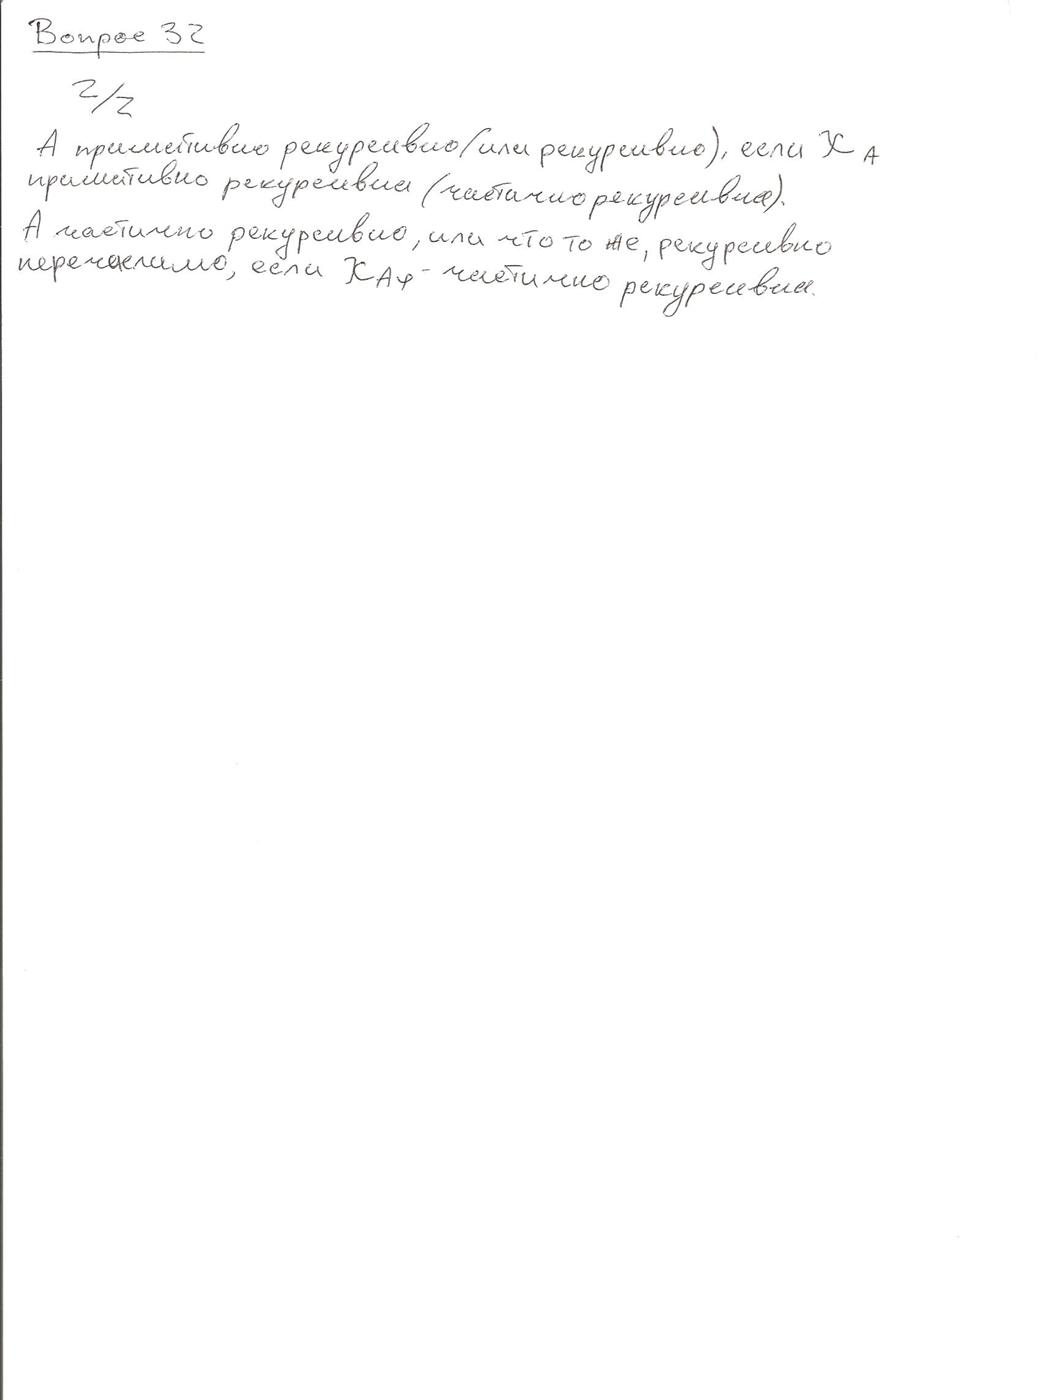 Вопрос 32
2/2
А приметивно рекурсивно (или рекурсивно), если χ A
приметивно рекурсивна (частично рекурсивна).
А частично рекурсивно, или что то же, рекурсивно
перечислимо, если χ Aч - частично рекурсивна.